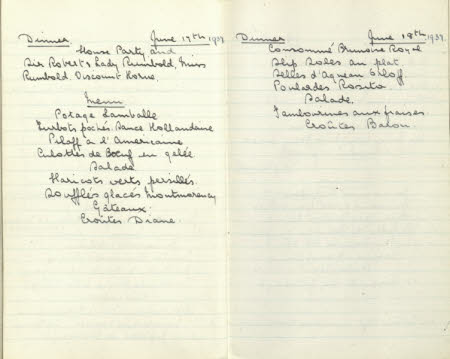 Dinner. June 17th 1937
House Party and
Sir Robert & Lady Rumbold, Miss
Rumbold, Viscount Horne.
Menu
Potage Lamballe
Turbots pochés. Sauce Hollandaise
Pilaff à l'Americaine
Culottes de Bœuf en gelée
Salade
Haricots verts persillés.
Soufflés glacés Montmorency
Gâteaux.
Croûtes Diane.
Dinner June 18th 1937.
Consommé Brunoise Royal
Slip Soles au plat
Selles d'Agneau Orloff
Poulardes Rosita
Salade.
Tambourines aux fraises.
Croûtes Baron.